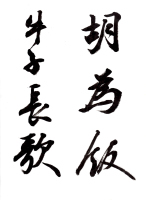 胡為飯
牛子長歌